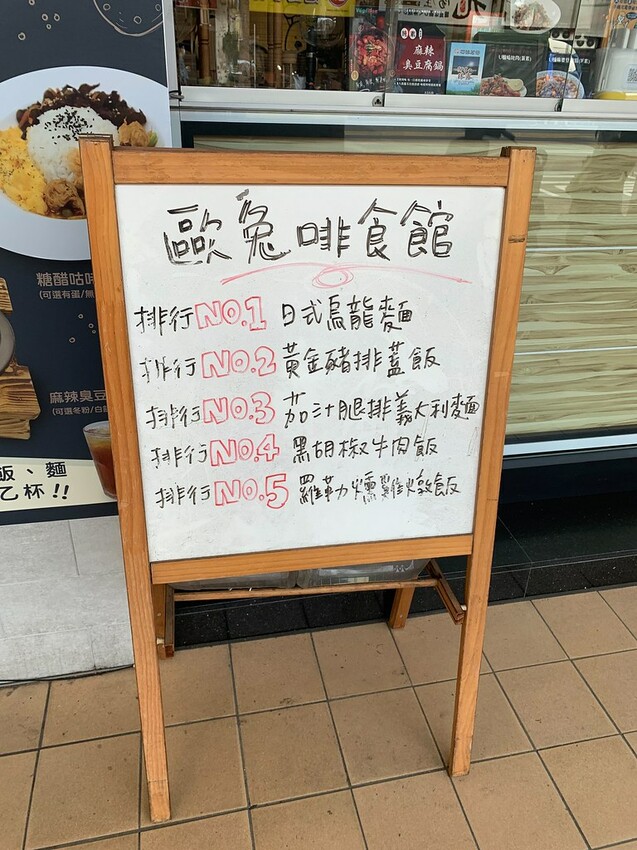 歐兔啡食館
排行NO.1 日式烏龍麵
排行NO.2 黃金豬排蓋飯
排行NO.3 茄汁腿排義大利麵
排行NO.4 黑胡椒牛肉飯
排行NO.5 羅勒燻雞燉飯
糖醋咕咾
(可選有蛋/無
麻辣臭豆
(可選冬粉/白
飯、麵
乙杯!!
麻辣
臭豆腐鍋